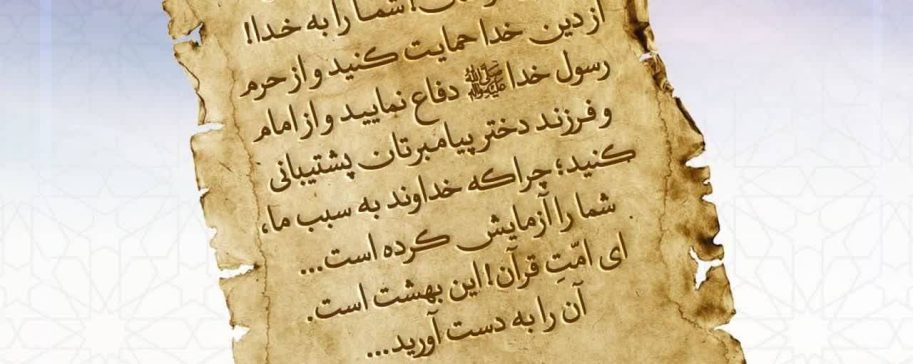 شما را به خدا!
از دین خدا حمایت کنید و از حرم
رسول خدا ﷺ دفاع نمایید و از امام
و فرزند دختر پیامبرتان پشتیبانی
کنید؛ چراکه خداوند به سبب ما،
شما را آزمایش کرده است...
ای امّتِ قرآن! این بهشت است.
آن را به دست آورید...